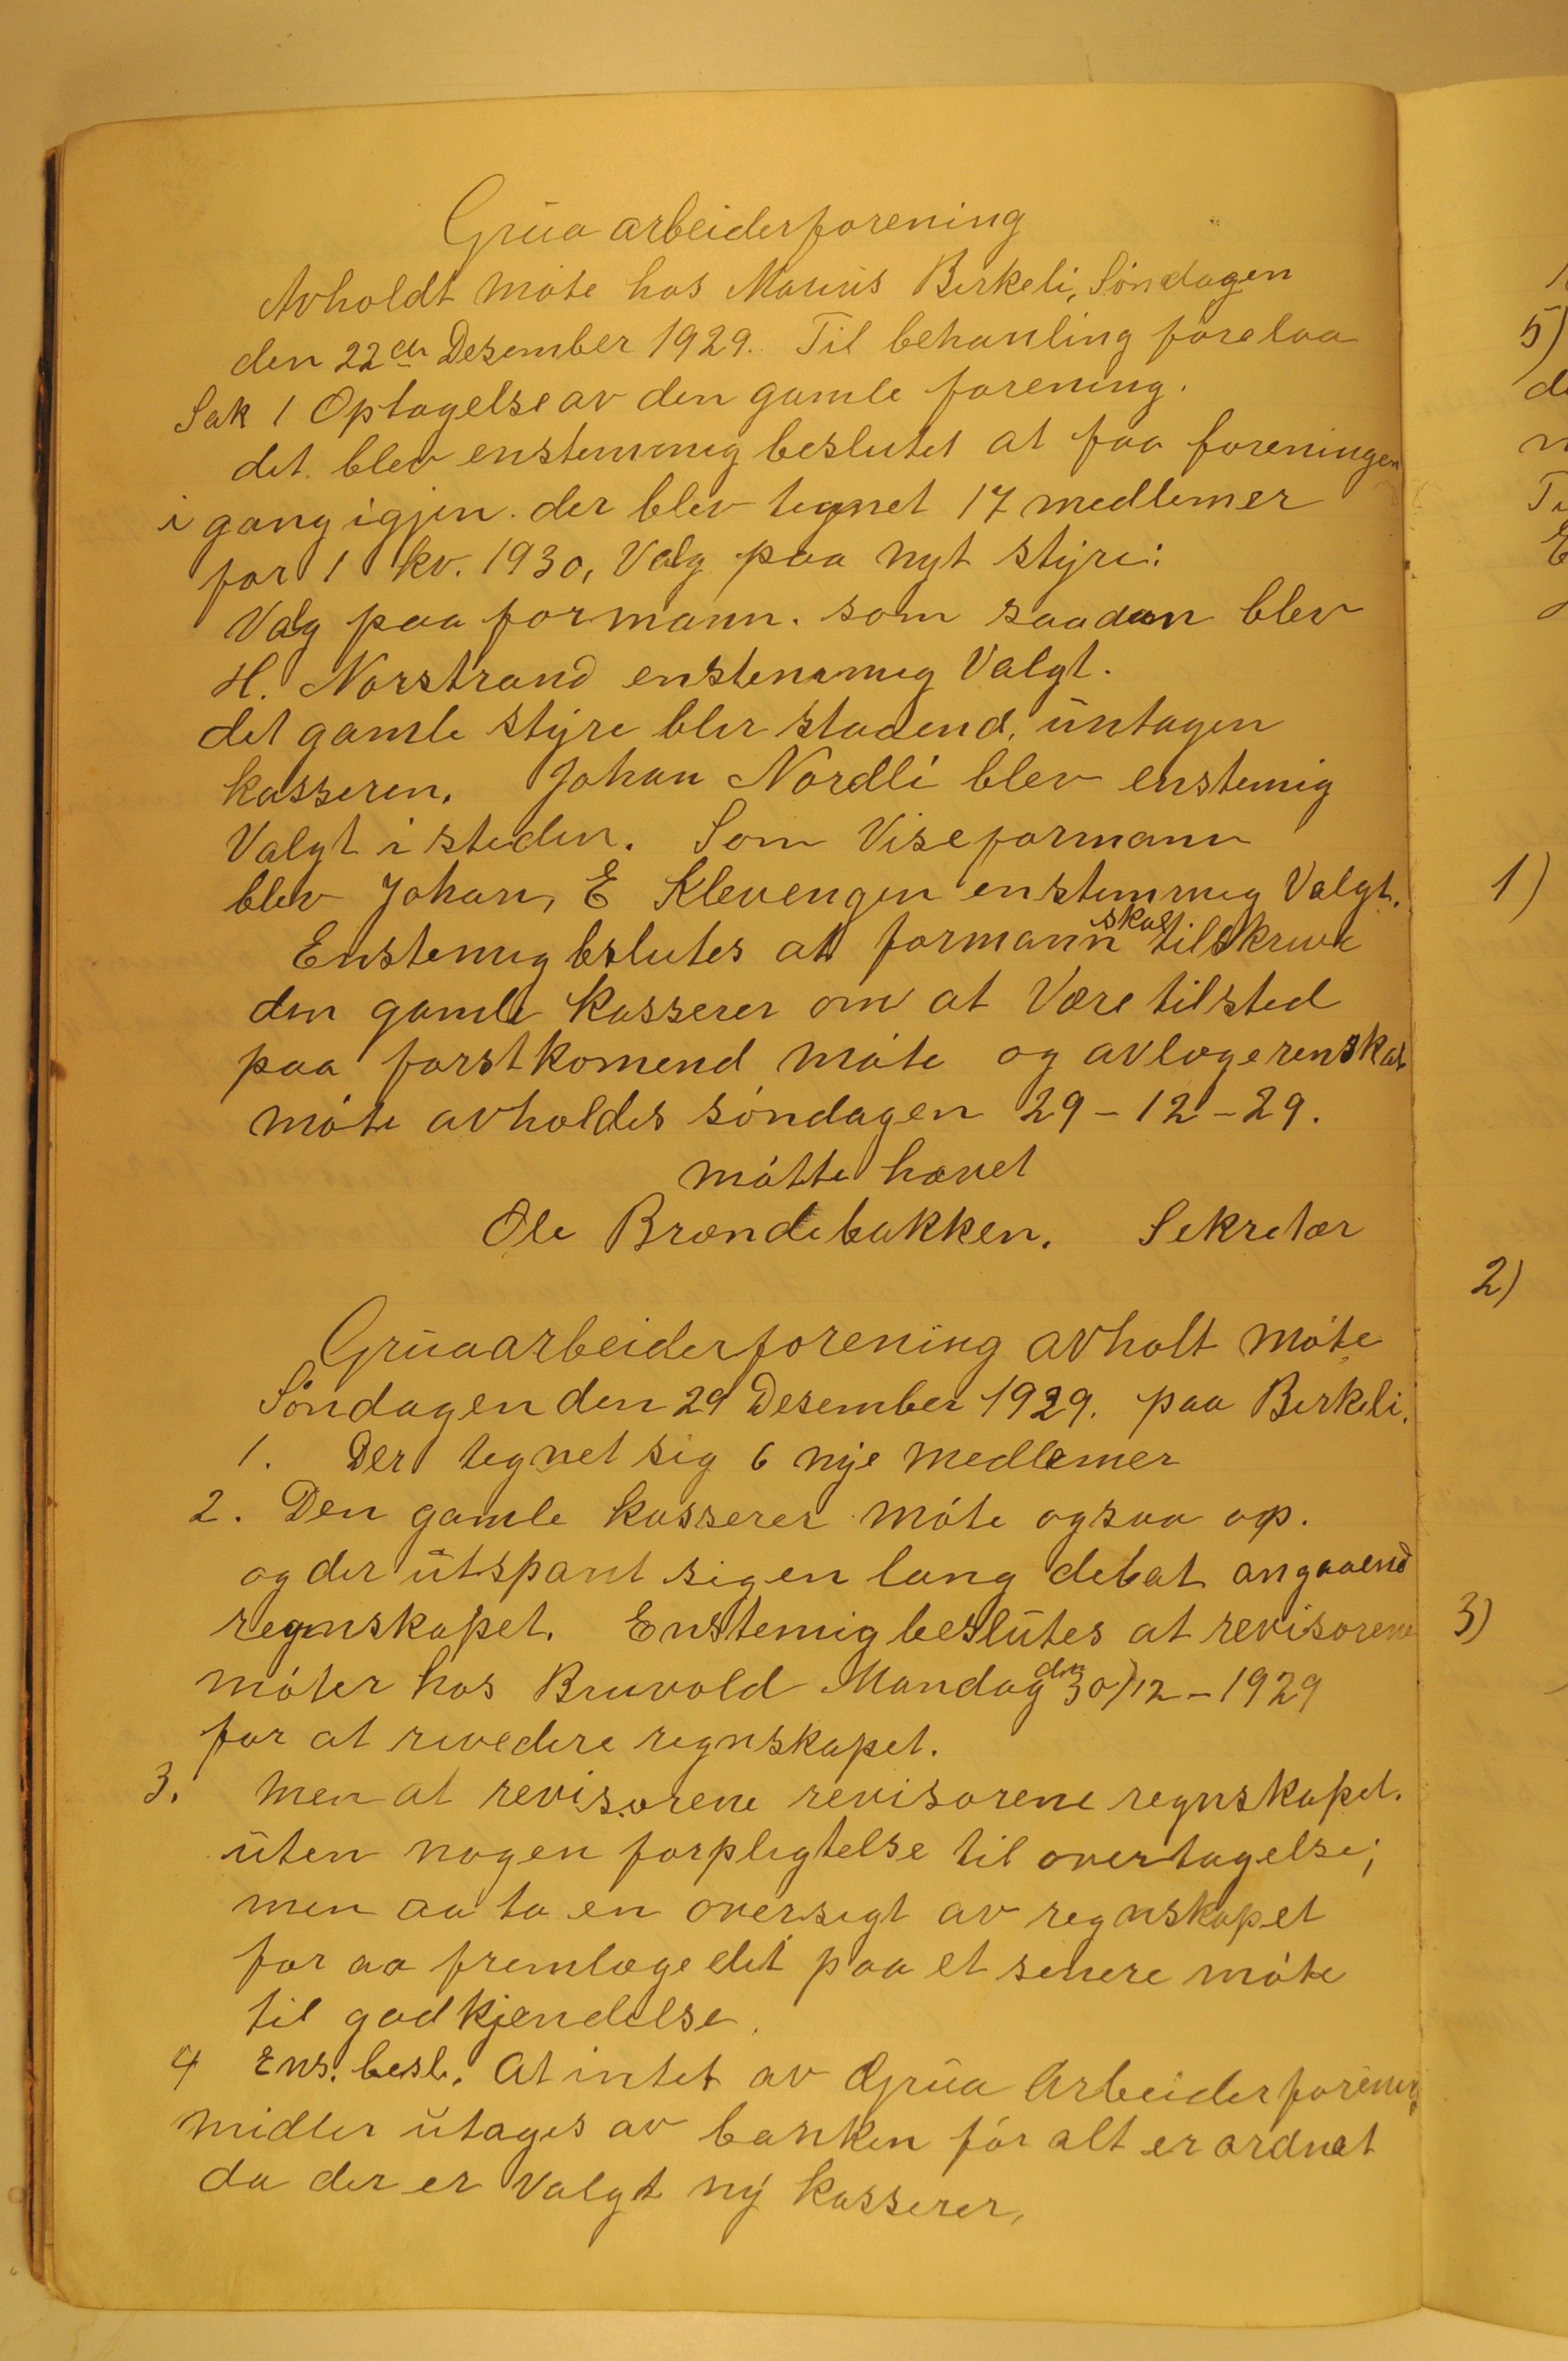 Grua arbeiderforening
Avholdt møte hos Marius Birkeli, Søndagen
den 22en Desember 1929. Til behanling forelaa
Sak 1 Optagelse av den gamle forening.
det. blev enstemmig beslutet at faa foreningen
i gang igjen. der blev tegnet 17 medlemer
for 1 kv. 1930, Valg paa nyt styre:
Valg paa formann. som saadan blev
H. Norstrand enstemmig Valgt.
det gamle styre blir staaend, untagen
kasseren. Johan Nordli blev enstemig
Valgt i steden. Som Viseformann
blev Johan, E Klevengen enstemmig Valgt.
Enstemig beslutes at formann skal tilskrive
den gamle kasserer om at Være tilsted
paa førstkomend møte og avlæge renskab
møte avholdes søndagen 29-12-29.
møtte hævet
Ole Brændebakken. Sekretær
Gruaarbeiderforening avholt møte
Søndagen den 29 Desember 1929. paa Birkeli.
1. Der tegnet sig 6 nye medlemer
2. Den gamle kasserer møte ogsaa op.
og der utspant sig en lang debat angaaend
regnskapet. Enstemig beslutes at revisorene
møter hos Bruvold Mandag den 30/12-1929
for at revedere regnskapet.
3. men at revisorene revisorene regnskapet.
uten nogen forpligtelse til overtagelse;
men aa ta en oversigt av regnskapet
for aa fremlæge det paa et senere møte
til godkjendelse.
4 Ens. besl. At intet av Grua Arbeiderforening
midler utages av banken før alt er ordnet
da der er Valgt ny kasserer,
5)
1)
2)
3)